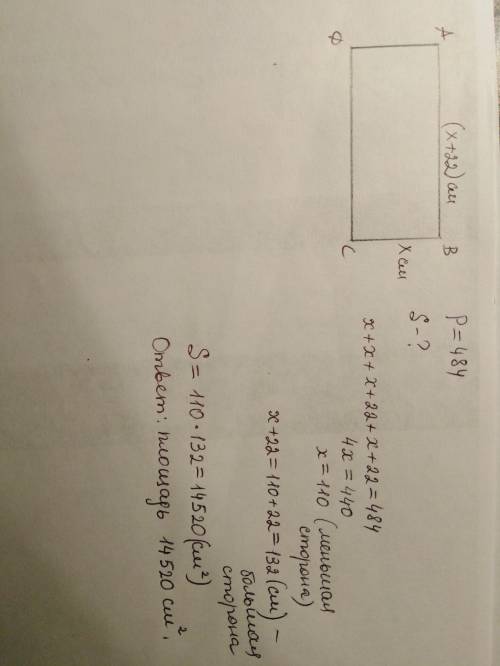 A (x+22) см B
x см
D C
P=484
S-?
x+x+x+22+x+22=484
4x=440
x=110 (меньшая
сторона)
x+22=110+22=132(см) –
большая
сторона
S=110·132=14520(см²)
Ответ: площадь 14520 см².